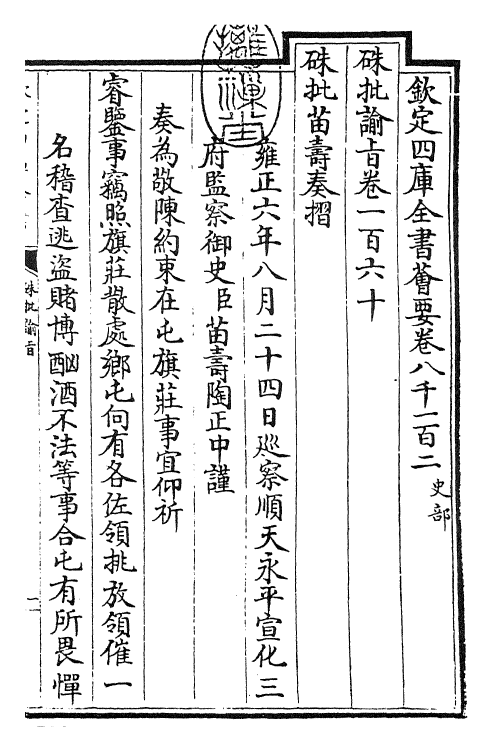 欽定四庫全書薈要卷八千一百二
史部
硃批諭旨卷一百六十
硃批苗壽奏摺
雍正六年八月二十四日巡察順天永平宣化三
府監察御史臣苗壽陶正中謹
奏為敬陳約束在屯旗莊事宜仰祈
睿鑒事竊照旗莊散處鄉屯向有各佐領挑放領催一
名稽查逃盜賭博酗酒不法等事合屯有所畏憚
硃批諭旨
一